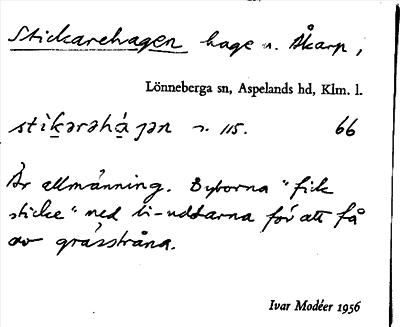 Stickarehagen hage n. Åkarp,
Lönneberga sn, Aspelands hd, Klm. l.
stìk̠ərəhá̠ɟən n. 115. 66
Är allmänning. Byborna "fick
sticke" med li-uddarna för att få
av grässtråna.
Ivar Modéer 1956